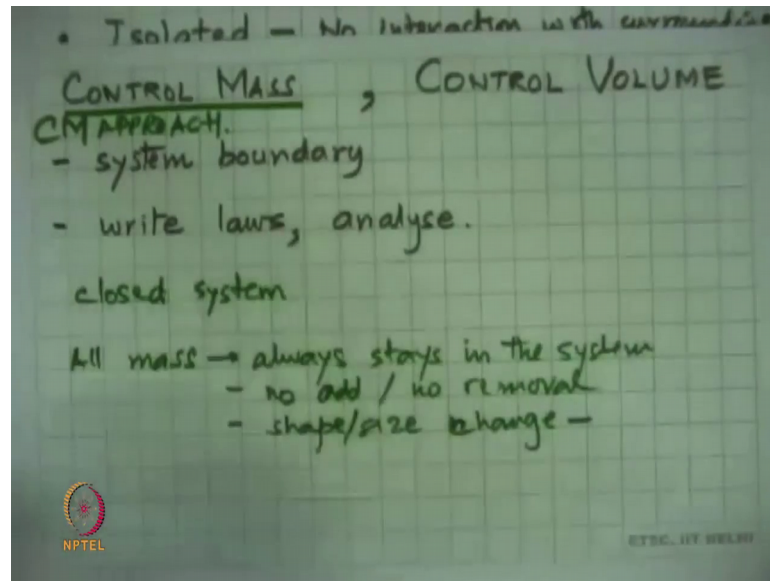 • Isolated – No interaction with surrounding
CONTROL MASS , CONTROL VOLUME
CM APPROACH.
- system boundary
- write laws, analyse.
closed system
All mass → always stays in the system
- no add / no removal
- shape/size change –
NPTEL
ETSC, IIT DELHI